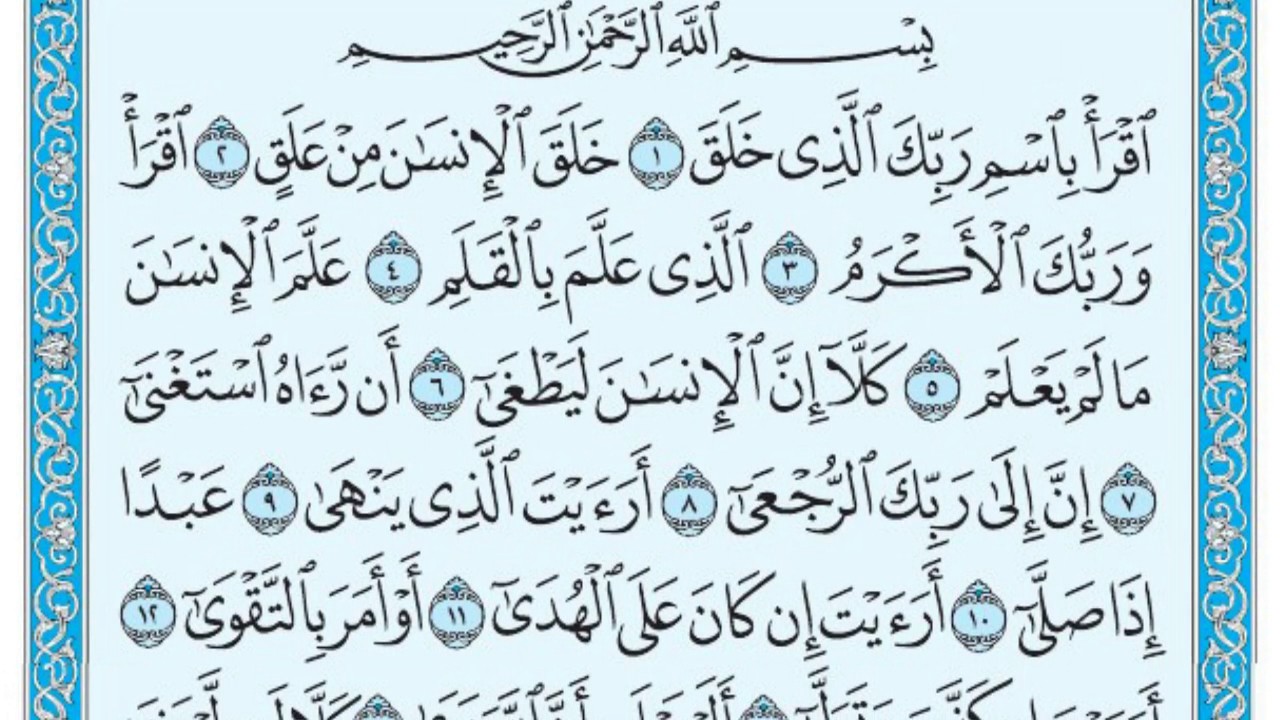 بِسْمِ ٱللَّهِ ٱلرَّحْمَٰنِ ٱلرَّحِيمِ
ٱقْرَأْ بِٱسْمِ رَبِّكَ ٱلَّذِى خَلَقَ ١ خَلَقَ ٱلْإِنسَٰنَ مِنْ عَلَقٍ ٢ ٱقْرَأْ
وَرَبُّكَ ٱلْأَكْرَمُ ٣ ٱلَّذِى عَلَّمَ بِٱلْقَلَمِ ٤ عَلَّمَ ٱلْإِنسَٰنَ
مَا لَمْ يَعْلَمْ ٥ كَلَّآ إِنَّ ٱلْإِنسَٰنَ لَيَطْغَىٰٓ ٦ أَن رَّءَاهُ ٱسْتَغْنَىٰٓ
٧ إِنَّ إِلَىٰ رَبِّكَ ٱلرُّجْعَىٰٓ ٨ أَرَءَيْتَ ٱلَّذِى يَنْهَىٰ ٩ عَبْدًا
إِذَا صَلَّىٰٓ ١٠ أَرَءَيْتَ إِن كَانَ عَلَى ٱلْهُدَىٰٓ ١١ أَوْ أَمَرَ بِٱلتَّقْوَىٰٓ ١٢